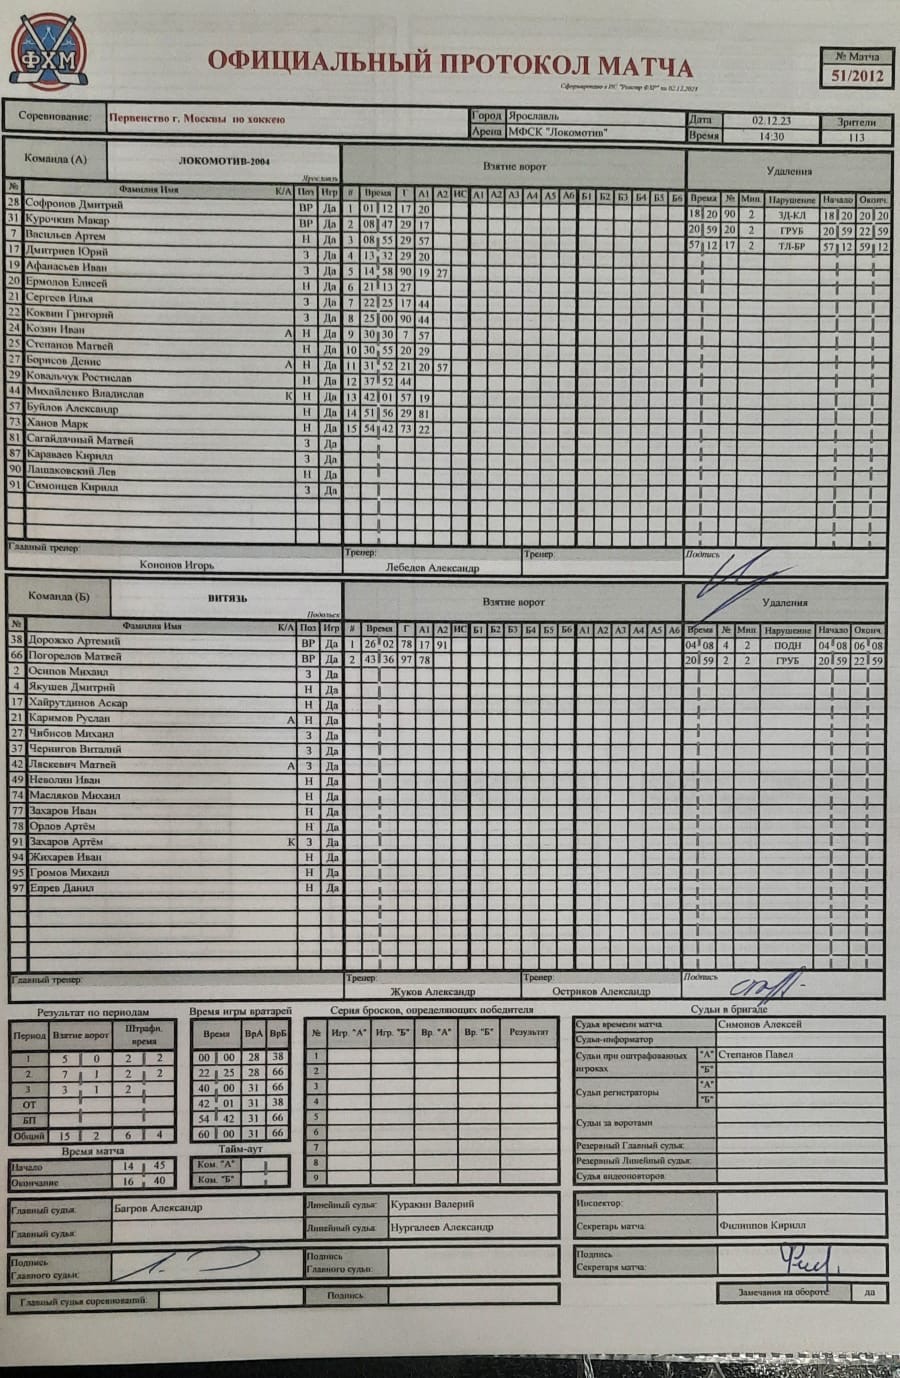 ФХМ
ОФИЦИАЛЬНЫЙ ПРОТОКОЛ МАТЧА
Сформировано в ИС "Реестр ФХР" на 02.12.2023
№ Матча
51/2012
Соревнование: Первенство г. Москвы по хоккею Город Ярославль Дата 02.12.23 Зрители
Арена МФСК "Локомотив" Время 14:30 113
Команда (А) ЛОКОМОТИВ-2004 Ярославль Взятие ворот Удаления
№ Фамилия Имя К/А Поз Игр # Время Г А1 А2 ИС А1 А2 А3 А4 А5 А6 Б1 Б2 Б3 Б4 Б5 Б6 Время № Мин. Нарушение Начало Оконч.
28 Софронов Дмитрий ВР Да 1 01 12 17 20 18 20 90 2 ЗД-КЛ 18 20 20 20
31 Курочкин Макар ВР Да 2 08 47 29 17 20 59 20 2 ГРУБ 20 59 22 59
7 Васильев Артем Н Да 3 08 55 29 57 57 12 17 2 ТЛ-БР 57 12 59 12
17 Дмитриев Юрий З Да 4 13 32 29 20
19 Афанасьев Иван З Да 5 14 58 90 19 27
20 Ермолов Елисей Н Да 6 21 13 27
21 Сергеев Илья З Да 7 22 25 17 44
22 Коквин Григорий З Да 8 25 00 90 44
24 Козин Иван А Н Да 9 30 30 7 57
25 Степанов Матвей Н Да 10 30 55 20 29
27 Борисов Денис А Н Да 11 31 52 21 20 57
29 Ковальчук Ростислав Н Да 12 37 52 44
44 Михайленко Владислав К Н Да 13 42 01 57 19
57 Буйлов Александр Н Да 14 51 56 29 81
73 Ханов Марк Н Да 15 54 42 73 22
81 Сагайдачный Матвей З Да
87 Караваев Кирилл З Да
90 Лашаковский Лев Н Да
91 Симонцев Кирилл З Да
Главный тренер: Тренер: Тренер: Подпись
Кононов Игорь Лебедов Александр
Команда (Б) ВИТЯЗЬ Подольск Взятие ворот Удаления
№ Фамилия Имя К/А Поз Игр # Время Г А1 А2 ИС Б1 Б2 Б3 Б4 Б5 Б6 А1 А2 А3 А4 А5 А6 Время № Мин. Нарушение Начало Оконч.
38 Дорожко Артемий ВР Да 1 26 02 78 17 91 04 08 4 2 ПОДН 04 08 06 08
66 Погорелов Матвей ВР Да 2 43 36 97 78 20 59 2 2 ГРУБ 20 59 22 59
2 Осипов Михаил З Да
4 Якушев Дмитрий Н Да
17 Хайрутдинов Аскар Н Да
21 Каримов Руслан А Н Да
27 Чибисов Михаил З Да
37 Чернигов Виталий З Да
42 Ляскевич Матвей А З Да
49 Неволин Иван Н Да
74 Масляков Михаил Н Да
77 Захаров Иван Н Да
78 Орлов Артём Н Да
91 Захаров Артём К З Да
94 Жихарев Иван Н Да
95 Громов Михаил Н Да
97 Епрев Данил Н Да
Главный тренер: Тренер: Тренер: Подпись
Жуков Александр Остриков Александр
Результат по периодам Время игры вратарей Серия бросков, определяющих победителя Судьи в бригаде
Период Взятие ворот Штрафн. время Время ВрА ВрБ № Игр. "А" Игр. "Б" Вр. "А" Вр. "Б" Результат
1 5 0 2 2
2 7 1 2 2
3 3 1 2
ОТ
БП
Общий 15 2 6 4
00 00 28 38
22 25 28 66
40 00 31 66
42 01 31 38
54 42 31 66
60 00 31 66
1
2
3
4
5
6
7
8
9
Судья времени матча Симонов Алексей
Судья-информатор
Судьи при оштрафованных игроках "А" Степанов Павел
"Б"
Судьи регистраторы "А"
"Б"
Судьи за воротами
Резервный Главный судья:
Резервный Линейный судья:
Судья видеоповторов
Время матча Тайм-аут
Начало 14 45 Ком. "А"
Окончание 16 40 Ком. "Б"
Главный судья: Багров Александр Линейный судья: Куракин Валерий Инспектор:
Главный судья: Линейный судья: Нургалеев Александр Секретарь матча: Филиппов Кирилл
Подпись Главного судьи: Подпись Главного судьи: Подпись Секретаря матча:
Главный судья соревнований: Подпись: Замечания на обороте да